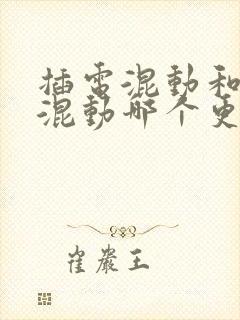 插電混動和
混動哪个更
崔嚴王